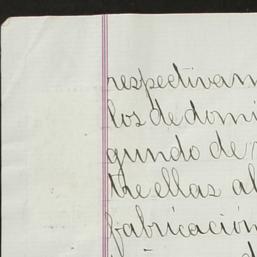 respectivam
los de domi
gundo de
the ellas al
fabricación